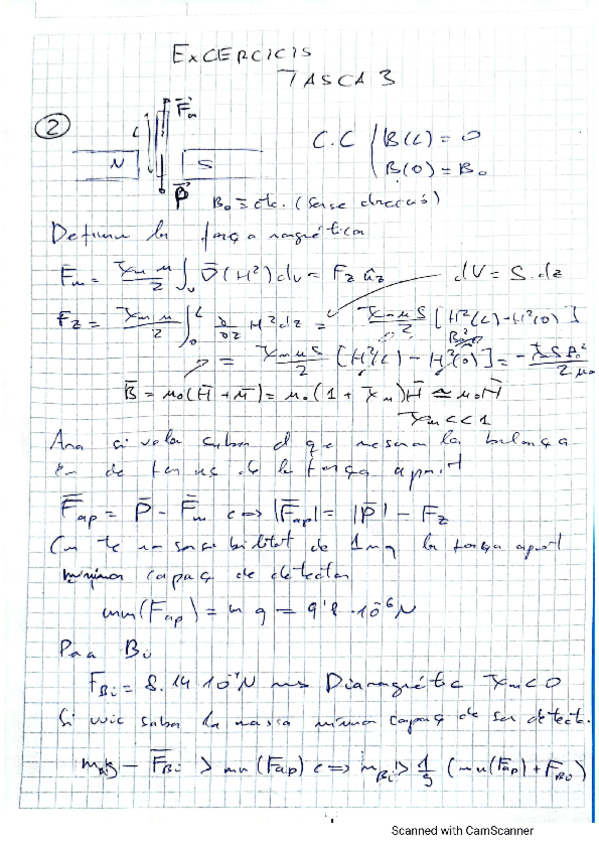 EXCERCICIS
TASCA 3
② L F̄m
C.C { B(L) = 0
B(0) = B₀
N S
P̄ B₀ = cte. (sense direcció)
Definim la força magnética
F̄m = χm μ/2 ∫v ∇̄(H²)dv = Fz âz dV = S.dz
Fz = χm μ/2 ∫₀^L ∂/∂z H² dz = χm μ S/2 [H²(L) - H²(0)]
= χm μ S/2 [H²(L) - H²(0)] = - χ S B₀²/2 μ₀
B̄ = μ₀(H̄ + M̄) = μ₀(1 + χm)H̄ ≃ μ₀H̄
χm << 1
Ara si volem saber el que mesura la balança
en de la força aparent
F̄ap = P̄ - F̄m <=> |F̄ap| = |P̄| - Fz
Com te una sensibilitat de 1mg la força aparent
mínima capaç de detectar
min(Fap) = m g = 9'8 · 10⁻⁶ N
Para Bi
F_Bi = 8.14 10⁻⁷ N Diamagnétic χm < 0
Si vull saber la massa mínima capaç de ser detecta.
m g - F̄_Bi > min(Fap) <=> m_Bi > 1/g (min(Fap) + F_Bi)
Scanned with CamScanner